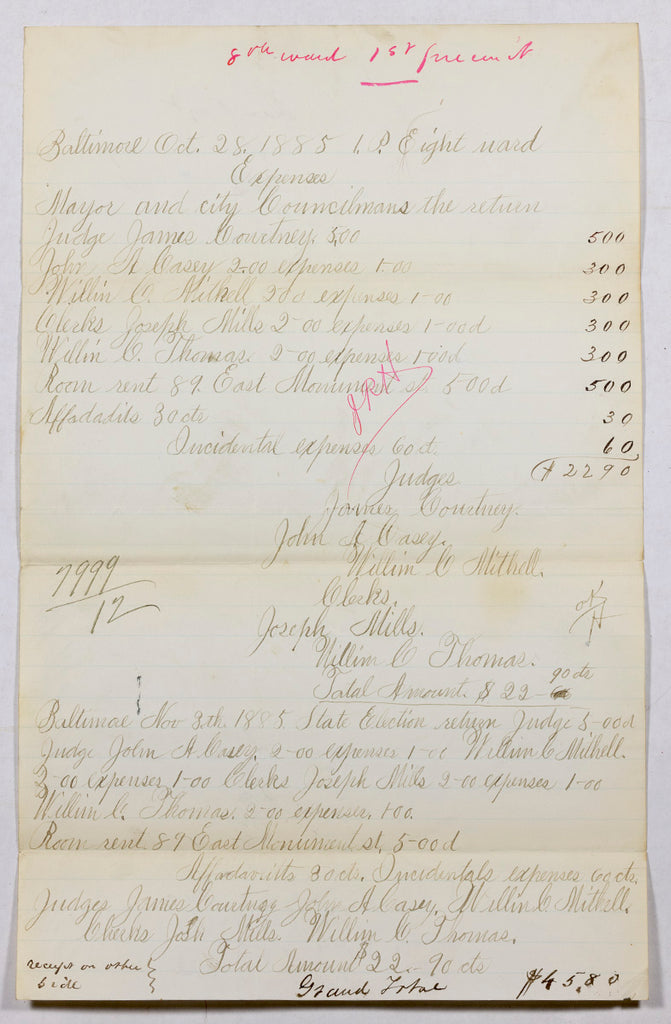 8th ward 1st precinct
Baltimore Oct. 28. 1885 1. P. Eight ward
Expenses
Mayor and city Councilmans the return
Judge James Courtney. 5,00 500
John A Casey 2-00 expenses 1-00 300
Willin C. Mithell 200 expenses 1-00 300
Clerks Joseph Mills 2-00 expenses 1-00d 300
Willin C. Thomas. 2-00 expenses 1-00d 300
Room rent 89. East Monument st. 5-00d 500
Affadadits 30 cts 30
Incidental expenses 60 ct. 60
JRH
$2290
Judges
James Courtney.
John A Casey.
Willim C Mithell.
7999
12
Clerks.
Joseph Mills.
Willim C Thomas.
Total Amount. $ 22- 90 cts
Baltimore Nov 3th 1885 State Election return Judge 5-00d
Judge John A Casey. 2-00 expenses 1-00 Willim C Mithell.
2-00 expenses 1-00 Clerks Joseph Mills 2-00 expenses 1-00
Willim C. Thomas. 2-00 expenses. 1-00.
Room rent. 89 East Monument st. 5-00d
Affadavitts 30 cts. Incidentals expenses 60 cts.
Judges James Courtney John A Casey. Willin C. Mithell.
Clerks Josh Mills. Willim C. Thomas.
Total Amount $22.-90 cts
receipt on other side
Grand Total $45,80